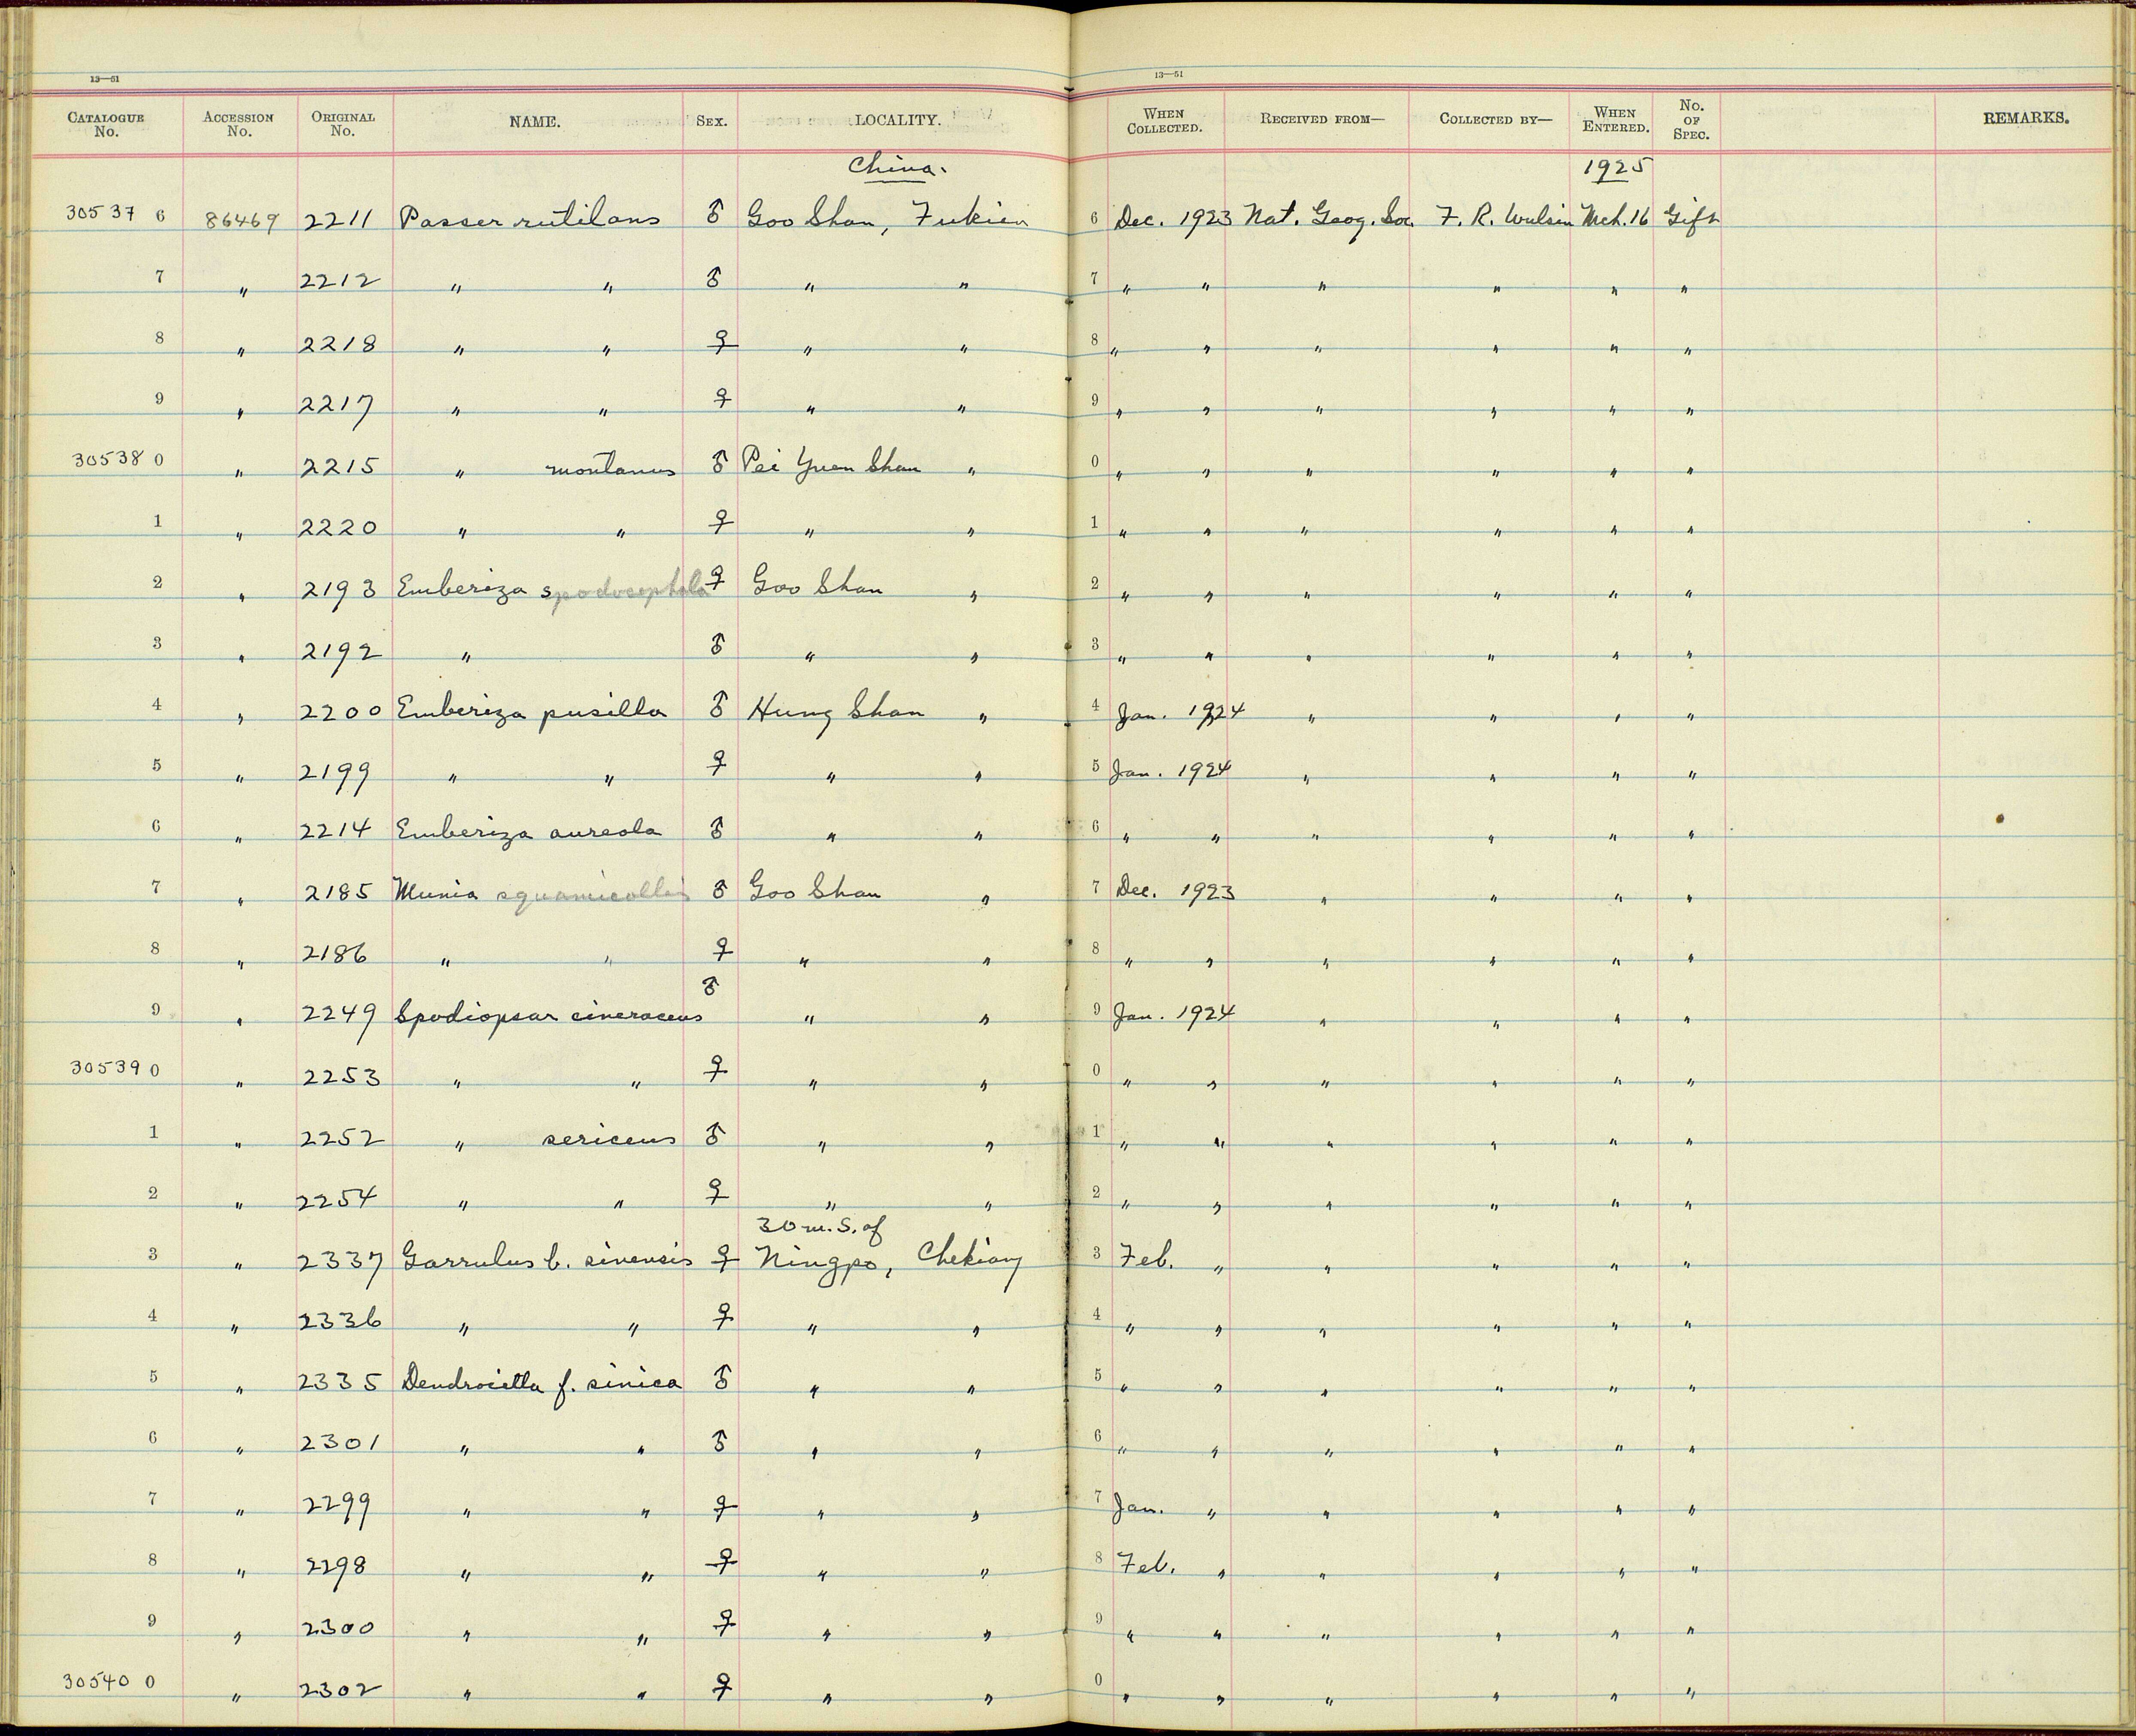 13—51
13—51
CATALOGUE No. ACCESSION No. ORIGINAL No. NAME. SEX. LOCALITY. WHEN COLLECTED. RECEIVED FROM— COLLECTED BY— WHEN ENTERED. No. OF SPEC. REMARKS.
China. 1925
30537 6 86469 2211 Passer rutilans ♂ Goo Shan, Fukien 6 Dec. 1923 Nat. Geog. Soc. F. R. Wulsin Mch. 16 Gift
7 " 2212 " " ♂ " " 7 " " " " " "
8 " 2218 " " ♀ " " 8 " " " " " "
9 " 2217 " " ♀ " " 9 " " " " " "
30538 0 " 2215 " montanus ♂ Pei Yuen Shan " 0 " " " " " "
1 " 2220 " " ♀ " " 1 " " " " " "
2 " 2193 Emberiza spodocephala ♀ Goo Shan " 2 " " " " " "
3 " 2192 " ♂ " " 3 " " " " " "
4 " 2200 Emberiza pusilla ♂ Hung Shan " 4 Jan. 1924 " " " "
5 " 2199 " " ♀ " " 5 Jan. 1924 " " " "
6 " 2214 Emberiza aureola ♂ " " 6 " " " " " "
7 " 2185 Munia squamicollis ♂ Goo Shan " 7 Dec. 1923 " " " "
8 " 2186 " " ♀ " " 8 " " " " " "
9 " 2249 Spodiopsar cineraceus ♂ " " 9 Jan. 1924 " " " "
30539 0 " 2253 " " ♀ " " 0 " " " " " "
1 " 2252 " sericeus ♂ " " 1 " " " " " "
2 " 2254 " " ♀ " " 2 " " " " " "
30 m. S. of
3 " 2337 Garrulus b. sinensis ♀ Ningpo, Chekiang 3 Feb. " " " " "
4 " 2336 " " ♀ " " 4 " " " " " "
5 " 2335 Dendrocitta f. sinica ♂ " " 5 " " " " " "
6 " 2301 " " ♂ " " 6 " " " " " "
7 " 2299 " " ♀ " " 7 Jan. " " " " "
8 " 2298 " " ♀ " " 8 Feb. " " " " "
9 " 2300 " " ♀ " " 9 " " " " " "
30540 0 " 2302 " " ♀ " " 0 " " " " " "